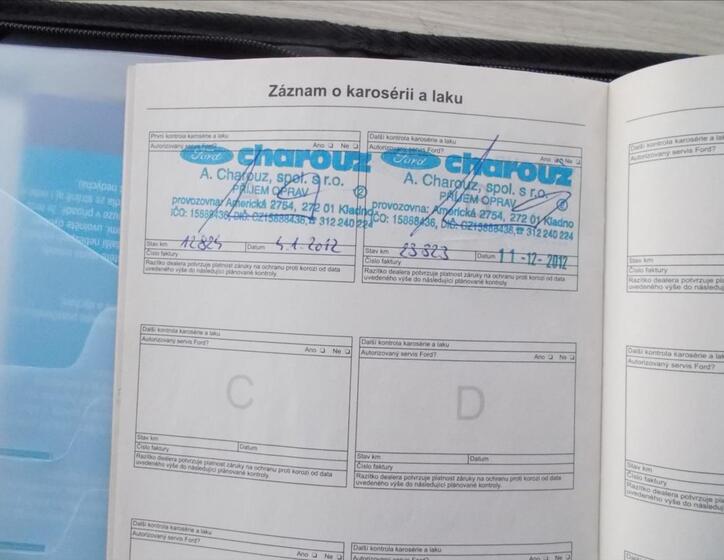 Záznam o karosérii a laku
První kontrola karosérie a laku
Autorizovaný servis Ford? Ano ❑ Ne ❑
Ford charouz
A. Charouz, spol. s r.o.
PŘÍJEM OPRAV 2
provozovna: Americká 2754, 272 01 Kladno
IČO: 15888436, DIČ: CZ15888436, ☎ 312 240 224
Stav km 12824 Datum 4.1.2012
Číslo faktury
Razítko dealera potvrzuje platnost záruky na ochranu proti korozi od data
uvedeného výše do následující plánované kontroly.
Další kontrola karosérie a laku
Autorizovaný servis Ford? Ano ❑ Ne ❑
Ford charouz
A. Charouz, spol. s r.o.
PŘÍJEM OPRAV
provozovna: Americká 2754, 272 01 Kladno
IČO: 15888436, DIČ: CZ15888436, ☎ 312 240 224
Stav km 23823 Datum 11-12-2012
Číslo faktury
Razítko dealera potvrzuje platnost záruky na ochranu proti korozi od data
uvedeného výše do následující plánované kontroly.
Další kontrola karosérie a laku
Autorizovaný servis Ford? Ano ❑ Ne ❑
C
Stav km Datum
Číslo faktury
Razítko dealera potvrzuje platnost záruky na ochranu proti korozi od data
uvedeného výše do následující plánované kontroly.
Další kontrola karosérie a laku
Autorizovaný servis Ford? Ano ❑ Ne ❑
D
Stav km Datum
Číslo faktury
Razítko dealera potvrzuje platnost záruky na ochranu proti korozi od data
uvedeného výše do následující plánované kontroly.
Další kontrola karosérie a laku
Autorizovaný servis Ford? Ano ❑ Ne ❑
Další kontrola karosérie a laku
Autorizovaný servis Ford? Ano ❑ Ne ❑